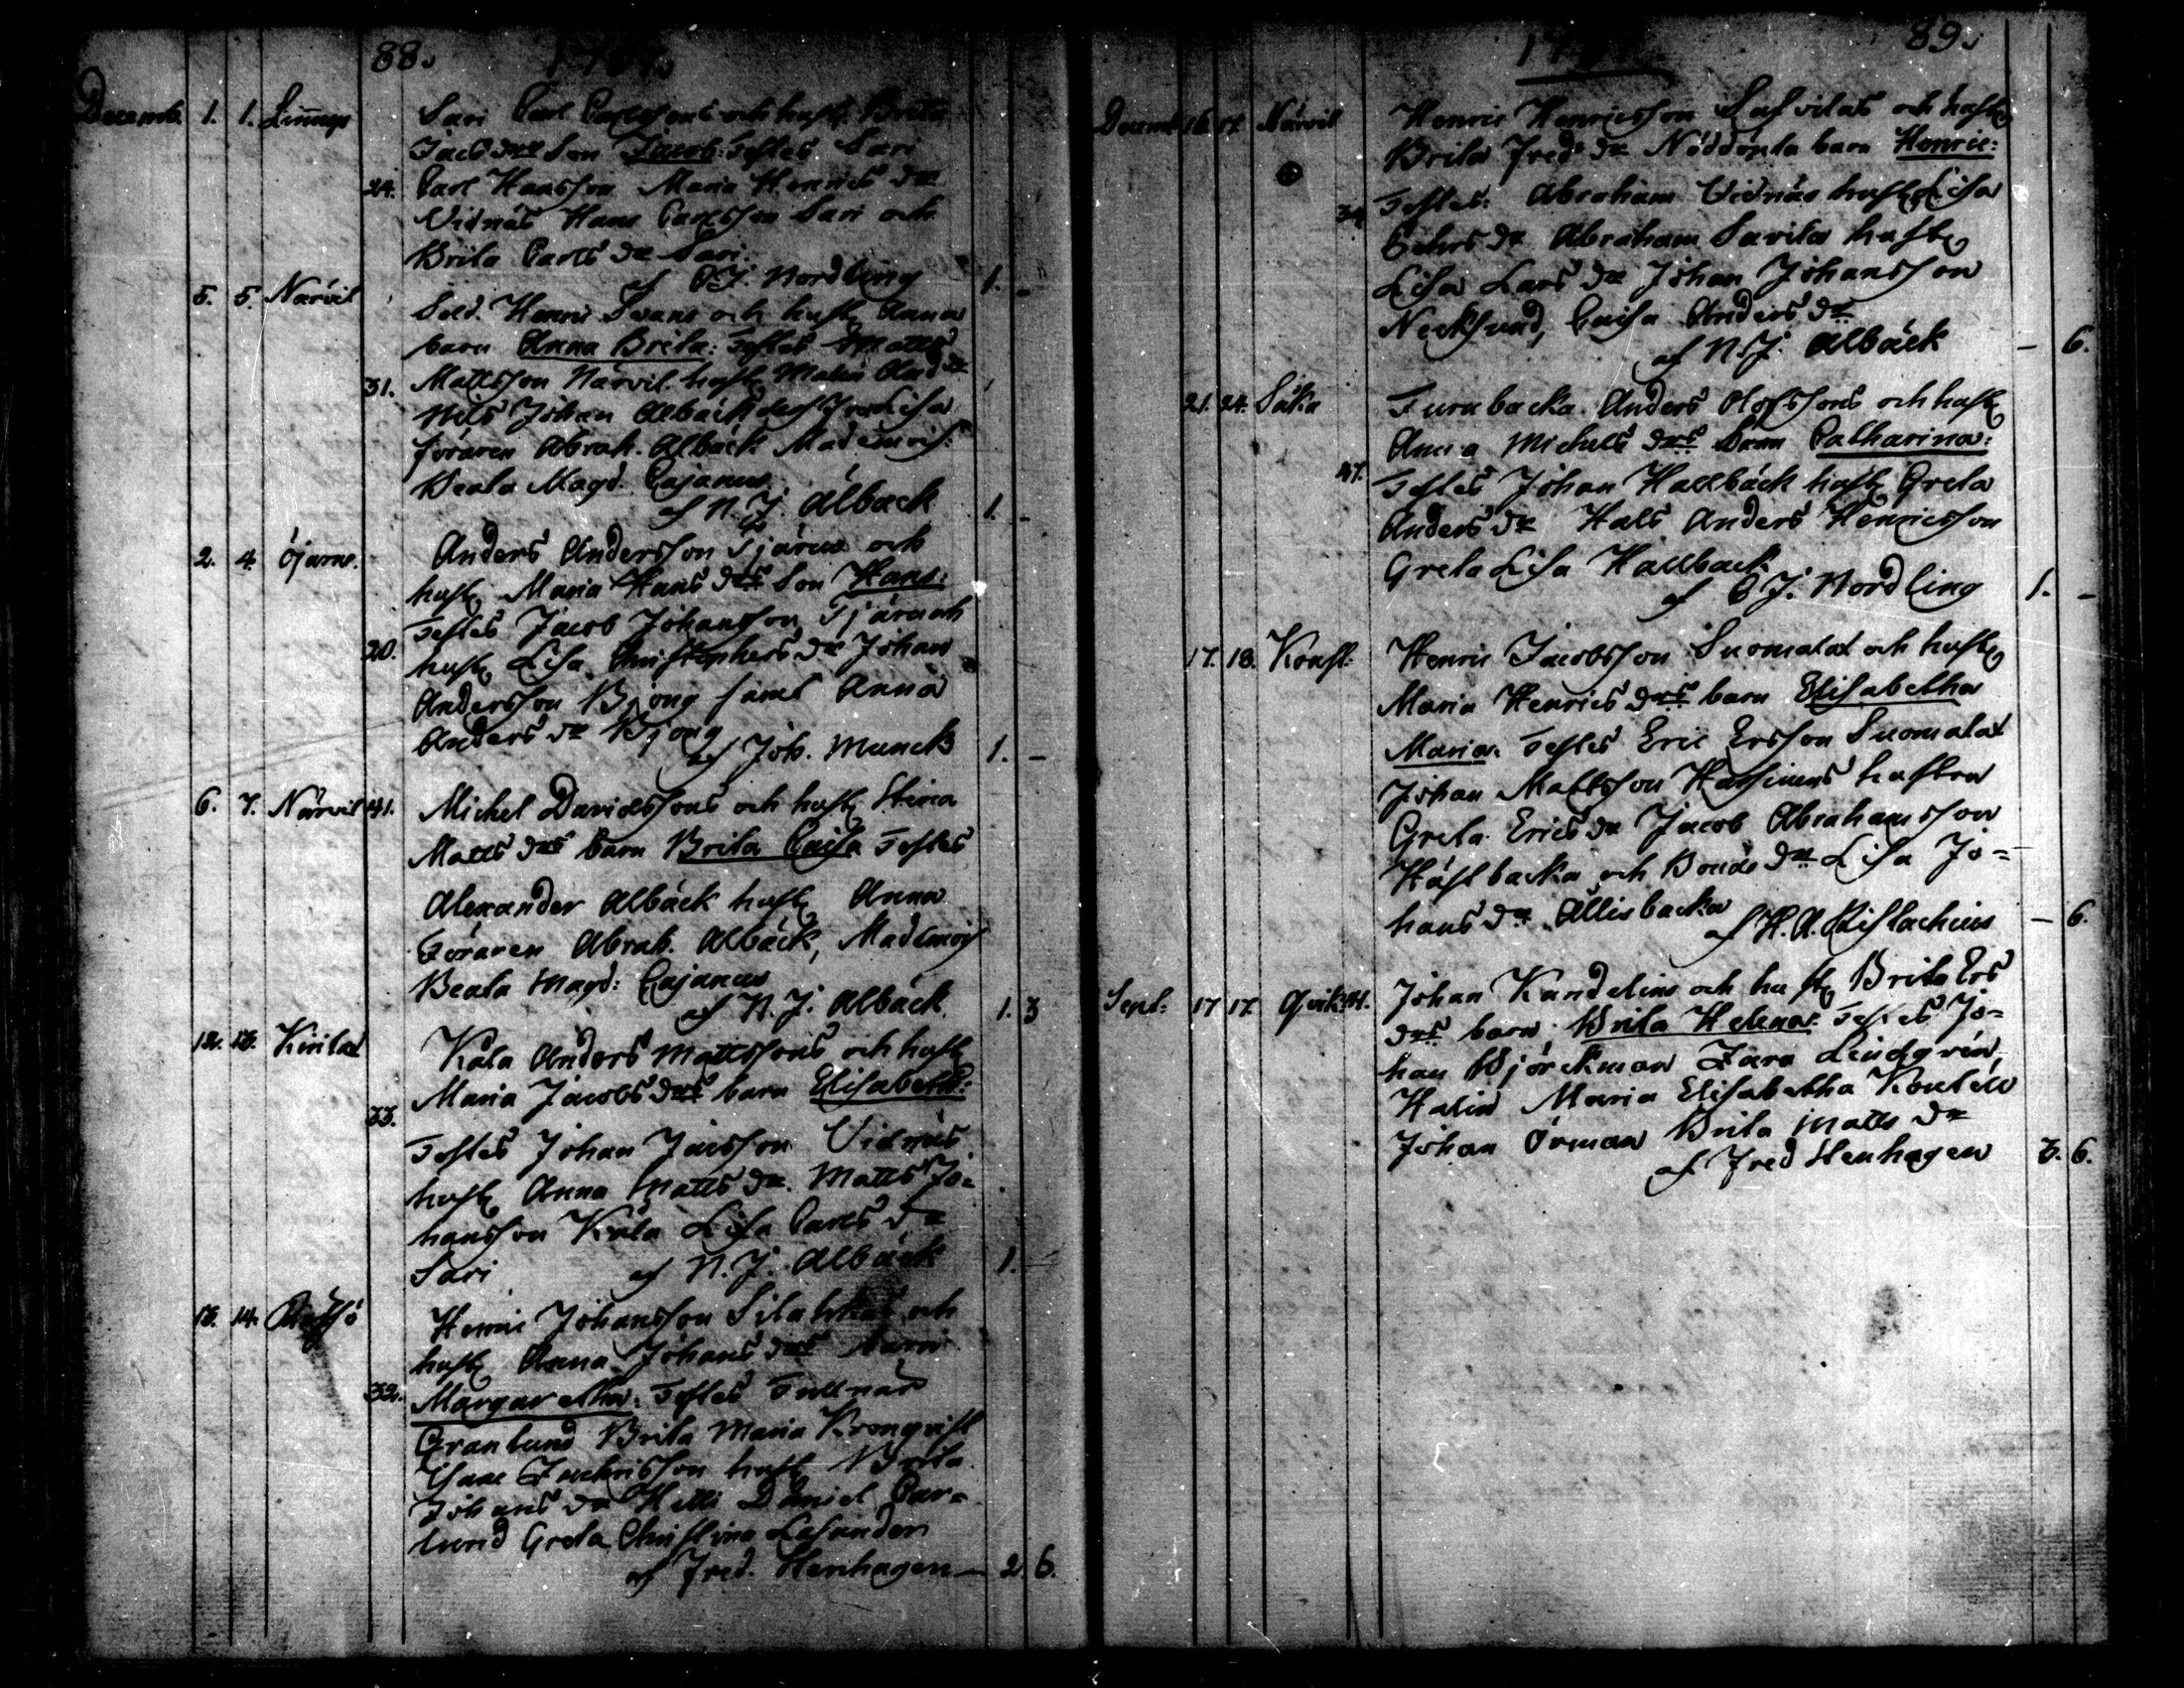 88.
Decemb. 1. 1. Linnags Sari Carl Carlssons och hust. Brita
Jacs drs Son Jacob: Testes Sari
24. Carl Hansson Maria Henrics dr
Vidnäs Hans Carlsson Sari och
Brita Carls dr Sari.
af C J. Nordling 1. -
5. 5. Närvil Sold. Henric Svans och hust. Anna
barn Anna Brita: Testes Matts
31. Mattsson Närvil hust. Malin And dr
Nils Johan Albäck des fru Lisa
föraren Abrah. Albäck Mademois:
Beata Magd. Cajanus
af N. J. Albäck 1. -
2. 4. Öjarne. Anders Andersson Tjäru och
hust. Maria Hans drs Son Hans:
Testes Jacob Johansson Tjäru och
20. hust. Lisa Christophers dr Johan
Andersson Bjong samt Anna
Anders dr Bjong
af Joh. Munck 1. -
6. 7. Närvil 41. Michel Davidssons och hust. Stina
Matts drs barn Brita Caisa Testes
Alexander Albäck hust. Anna
Föraren Abrah. Albäck, Mademois
Beata Magd: Cajanus
af N. J. Albäck. 1. 3
12. 13. Kirilax Kåla Anders Mattssons och hust.
Maria Jacobs drs barn Elisabeth:
33.
Testes Johan Jacsson Vidnäs
hust. Anna Matts dr. Matts Jo=
hansson Kåla Lisa Carls dr
Sari af N. J. Albäck 1. -
13. 14. Henric Johansson och
hust. Anna Johans drs barn
32. Margaretha: Testes Tullnär
Granlund Brita Maria Kronqvist
Isaac hust. Brita
Johans dr Daniel Car=
lund Greta Christina
af Fred. Stenhagen - 2. 6.
89.
Decemb. 16. 17. Närvil Henric Henricsson och hust.
Brita Fred. dr barn Henric:
Testes: Abraham Vidnäs hust. Lisa
34. dr Abraham Savila hust.
Lisa Lars dr Johan Johansson
Necksund, Caisa Anders dr
af N. J. Albäck - 6.
21. 24. Såka Furubacka Anders Olofssons och hust.
Anna Michels drs barn Catharina:
47. Testes Johan Hallbäck hust. Greta
Anders dr Hals Anders Henricsson
Greta Lisa Hallbäck
af C J. Nordling 1. -
17. 18. Henric Jacobsson Suomalax och hust.
Maria Henrics drs barn Elisabetha
Maria: Testes Eric Ersson Suomalax
Johan Mattsson hustru
Greta Erics dr Jacob Abrahamsson
Hästbacka och Bonde dr Lisa Jo=
hans dr Ållisbacka
af H. A. Rislachius - 6.
Sept. 17 17. Johan Kandelins och hust. Brita Ers
drs barn Brita Helena: Testes Jo=
han Björckman Zara Lindqvén,
Halin Maria Elisabetha
Johan Örman Brita Matts dr
af Fred Stenhagen 3. 6.